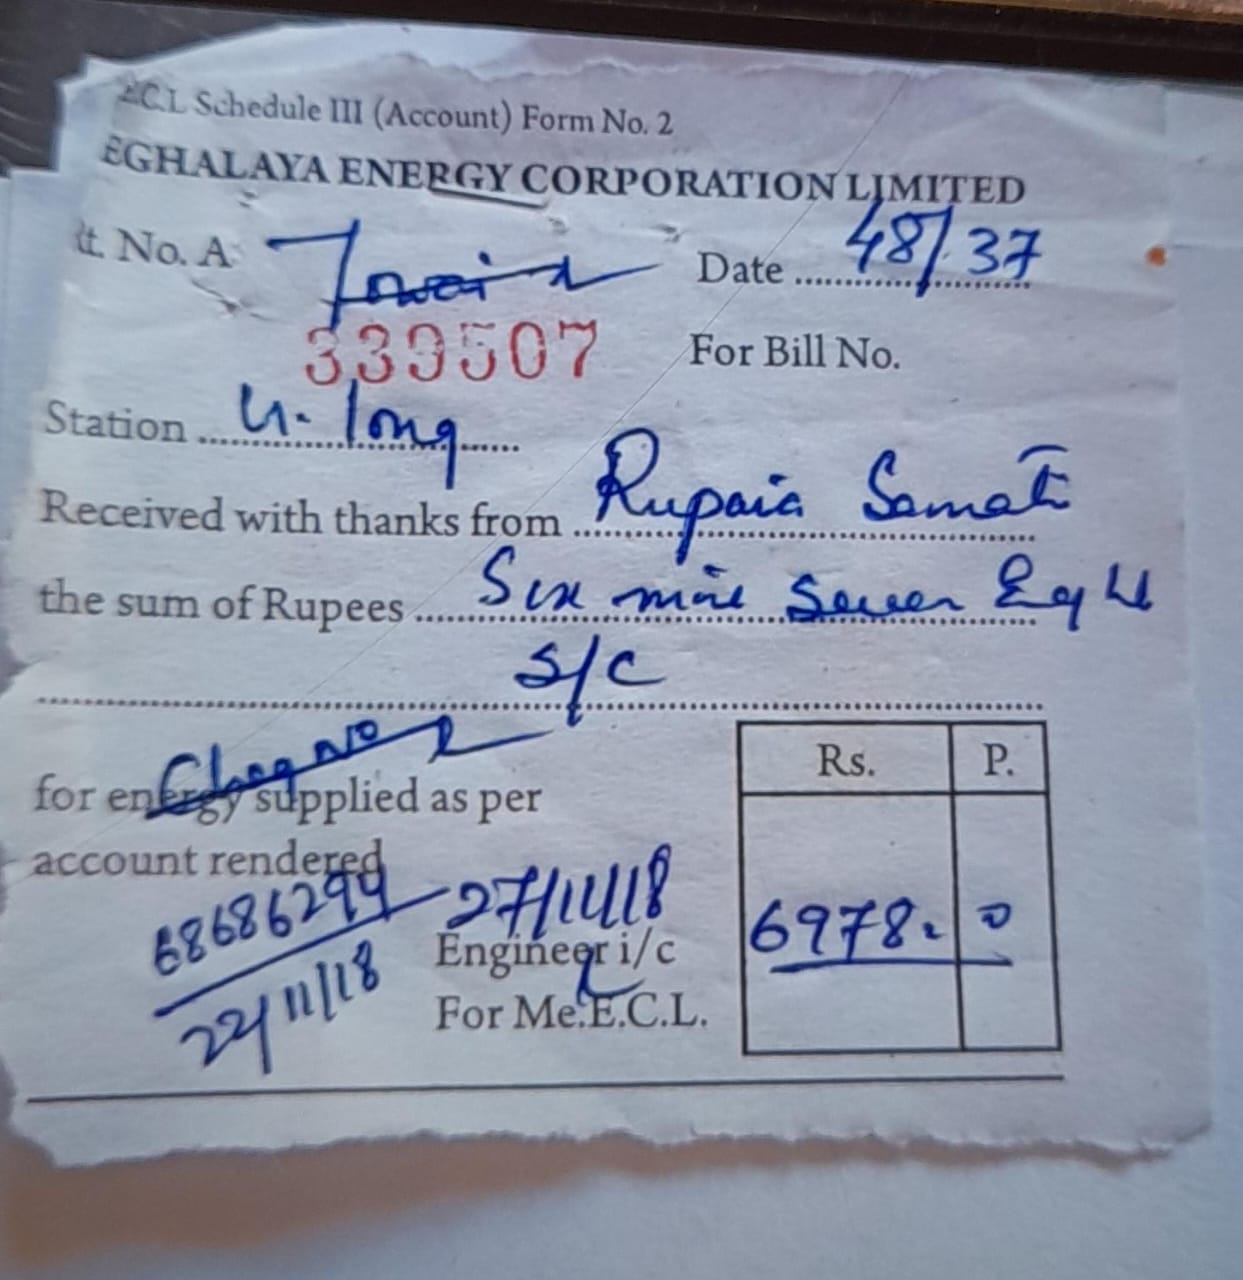 E.C.L Schedule III (Account) Form No. 2
EGHALAYA ENERGY CORPORATION LIMITED
t. No. A
Date 48/37
339507 For Bill No.
Station U. long
Received with thanks from Rupaia
the sum of Rupees Six nine Seven Eight
S/C
Cheq No
for energy supplied as per
account rendered
68686299 27/11/18
22/11/18
Engineer i/c
For Me.E.C.L.
Rs. P.
6978. 0